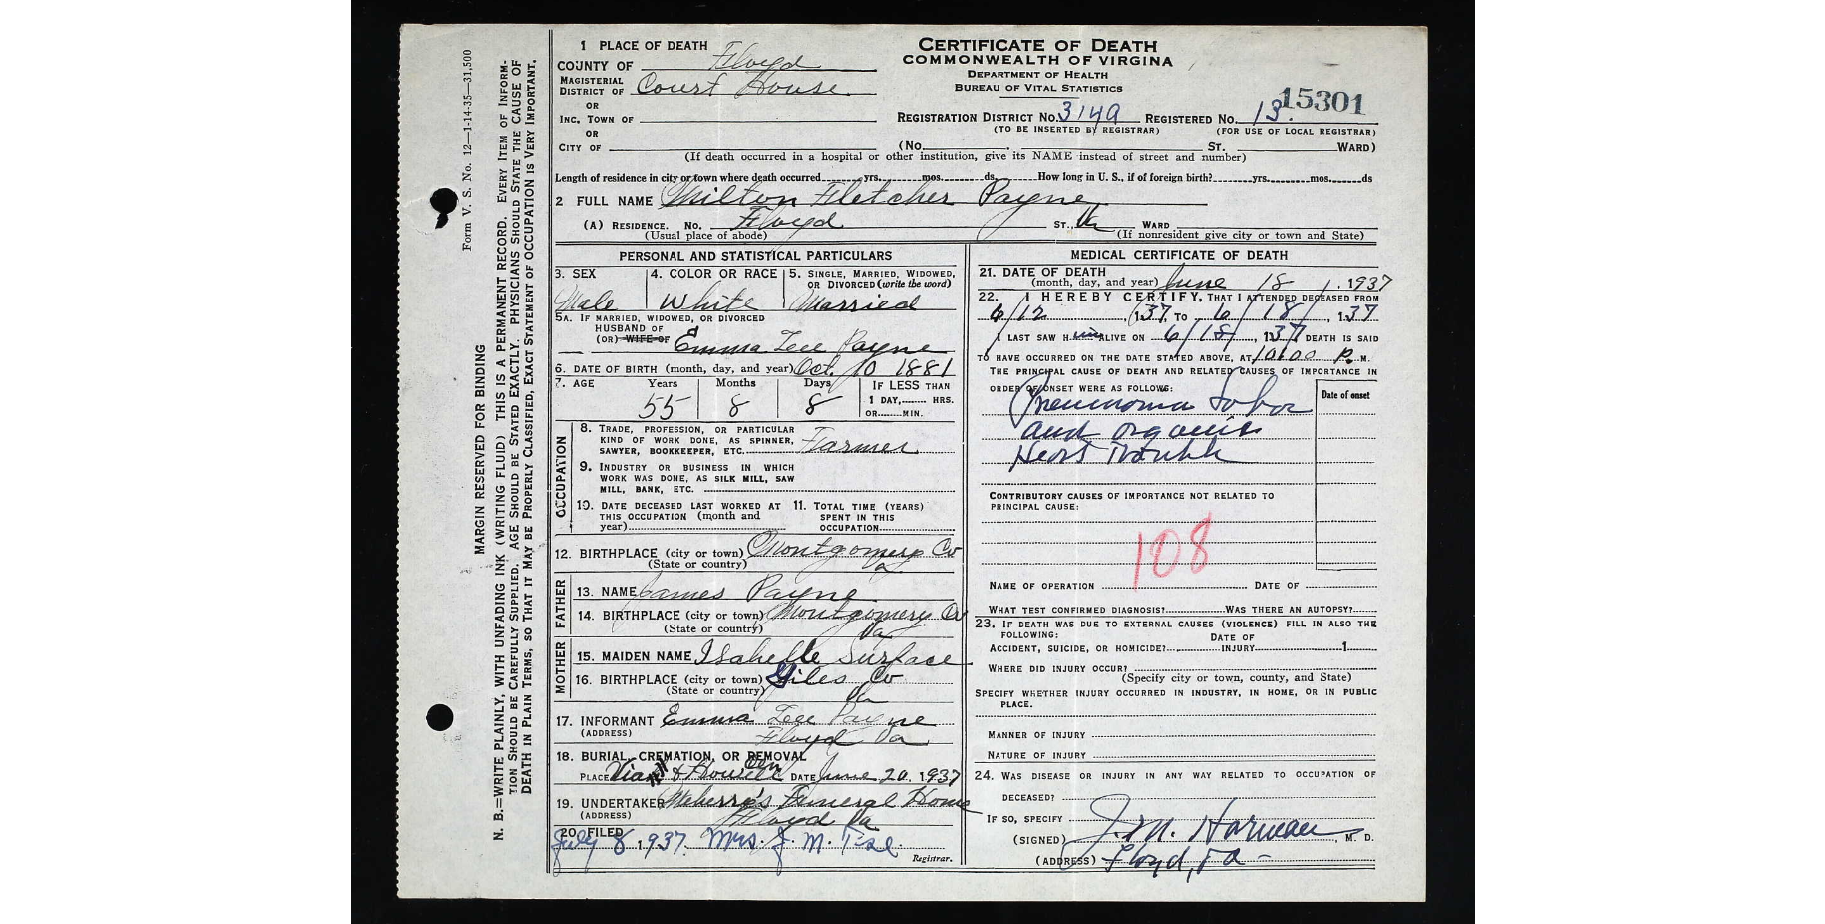 Form V. S. No. 12—1-14-35—31,500
MARGIN RESERVED FOR BINDING
N. B.=WRITE PLAINLY, WITH UNFADING INK (WRITING FLUID) THIS IS A PERMANENT RECORD. EVERY ITEM OF INFORM-
TION SHOULD BE CAREFULLY SUPPLIED. AGE SHOULD BE STATED EXACTLY. PHYSICIANS SHOULD STATE THE CAUSE OF
DEATH IN PLAIN TERMS, SO THAT IT MAY BE PROPERLY CLASSIFIED, EXACT STATEMENT OF OCCUPATION IS VERY IMPORTANT.
1 PLACE OF DEATH
COUNTY OF Floyd
MAGISTERIAL DISTRICT OF Court House
OR
INC. TOWN OF
OR
CITY OF
CERTIFICATE OF DEATH
COMMONWEALTH OF VIRGINA
DEPARTMENT OF HEALTH
BUREAU OF VITAL STATISTICS
15301
REGISTRATION DISTRICT NO. 3149 REGISTERED NO. 13.
(TO BE INSERTED BY REGISTRAR) (FOR USE OF LOCAL REGISTRAR)
(No. ST. WARD)
(If death occurred in a hospital or other institution, give its NAME instead of street and number)
Length of residence in city or town where death occurred yrs. mos. ds. How long in U. S., if of foreign birth? yrs. mos. ds
2 FULL NAME Milton Fletcher Payne
(A) RESIDENCE. NO. Floyd ST., Va WARD
(Usual place of abode) (If nonresident give city or town and State)
PERSONAL AND STATISTICAL PARTICULARS
3. SEX 4. COLOR OR RACE 5. SINGLE, MARRIED, WIDOWED,
OR DIVORCED (write the word)
Male White Married
5A. IF MARRIED, WIDOWED, OR DIVORCED
HUSBAND OF
(OR) WIFE OF Emma Lee Payne
6. DATE OF BIRTH (month, day, and year) Oct. 10 1881
7. AGE Years Months Days IF LESS THAN
55 8 8 1 DAY, HRS.
OR MIN.
OCCUPATION
8. TRADE, PROFESSION, OR PARTICULAR
KIND OF WORK DONE, AS SPINNER,
SAWYER, BOOKKEEPER, ETC. Farmer
9. INDUSTRY OR BUSINESS IN WHICH
WORK WAS DONE, AS SILK MILL, SAW
MILL, BANK, ETC.
10. DATE DECEASED LAST WORKED AT 11. TOTAL TIME (YEARS)
THIS OCCUPATION (month and SPENT IN THIS
year) OCCUPATION
12. BIRTHPLACE (city or town) Montgomery Co
(State or country) Va
FATHER
13. NAME James Payne
14. BIRTHPLACE (city or town) Montgomery Co
(State or country) Va
MOTHER
15. MAIDEN NAME Isabelle Surface
16. BIRTHPLACE (city or town) Giles Co
(State or country) Va
17. INFORMANT Emma Lee Payne
(ADDRESS) Floyd Va
18. BURIAL, CREMATION, OR REMOVAL
PLACE & Howell Cem DATE June 20, 1937
19. UNDERTAKER Funeral Home
(ADDRESS) Floyd Va
20. FILED
July 8 1937. Mrs. J. M.
Registrar.
MEDICAL CERTIFICATE OF DEATH
21. DATE OF DEATH
(month, day, and year) June 18, 1937
22. I HEREBY CERTIFY, THAT I ATTENDED DECEASED FROM
6/12, 137, TO 6/18/, 137
I LAST SAW H im ALIVE ON 6/18/, 137 DEATH IS SAID
TO HAVE OCCURRED ON THE DATE STATED ABOVE, AT 10:00 P. M.
THE PRINCIPAL CAUSE OF DEATH AND RELATED CAUSES OF IMPORTANCE IN
ORDER OF ONSET WERE AS FOLLOWS:
Date of onset
Pneumonia Lobar
and organic
Heart Trouble
CONTRIBUTORY CAUSES OF IMPORTANCE NOT RELATED TO
PRINCIPAL CAUSE:
108
NAME OF OPERATION DATE OF
WHAT TEST CONFIRMED DIAGNOSIS? WAS THERE AN AUTOPSY?
23. IF DEATH WAS DUE TO EXTERNAL CAUSES (VIOLENCE) FILL IN ALSO THE
FOLLOWING: DATE OF
ACCIDENT, SUICIDE, OR HOMICIDE? INJURY 1
WHERE DID INJURY OCCUR?
(Specify city or town, county, and State)
SPECIFY WHETHER INJURY OCCURRED IN INDUSTRY, IN HOME, OR IN PUBLIC
PLACE.
MANNER OF INJURY
NATURE OF INJURY
24. WAS DISEASE OR INJURY IN ANY WAY RELATED TO OCCUPATION OF
DECEASED?
IF SO, SPECIFY
(SIGNED) J. M. Harman, M. D.
(ADDRESS) Floyd, Va -